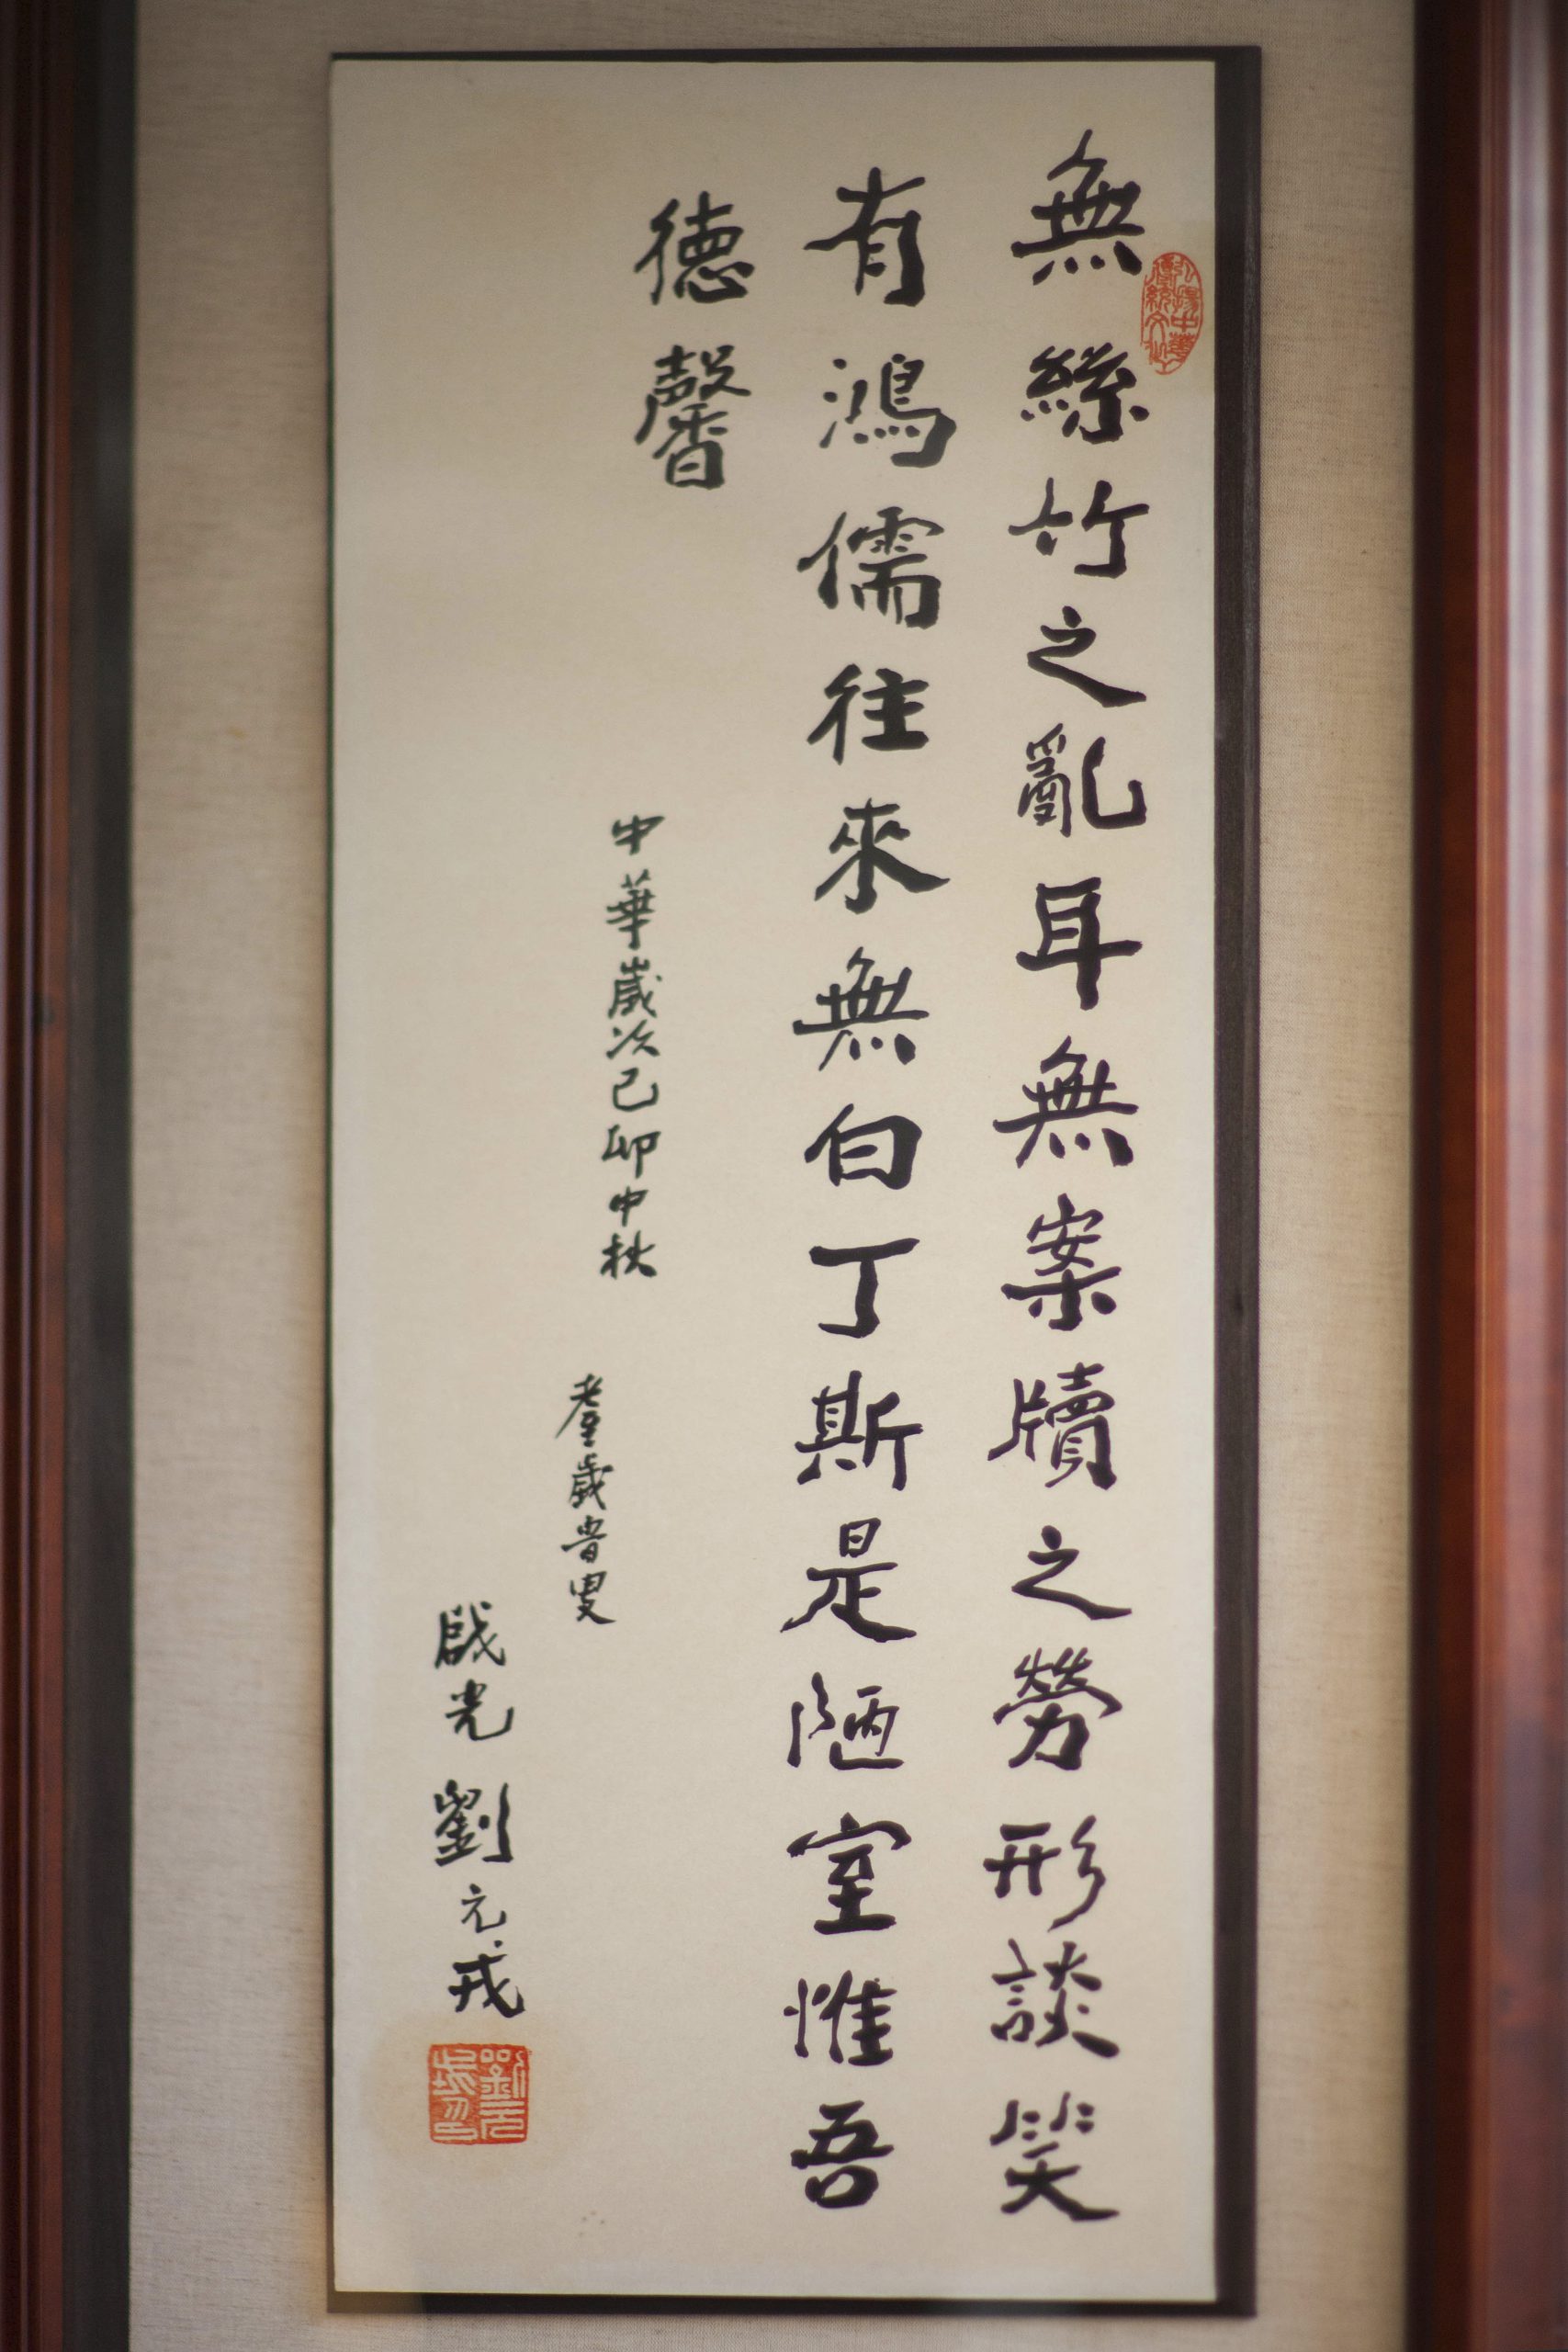 無絲竹之亂耳無案牘之勞形談笑
有鴻儒往來無白丁斯是陋室惟吾
德馨
中華歲次己卯中秋
耋歲耆叟
啟光 劉元戎
弘揚中華傳統文化